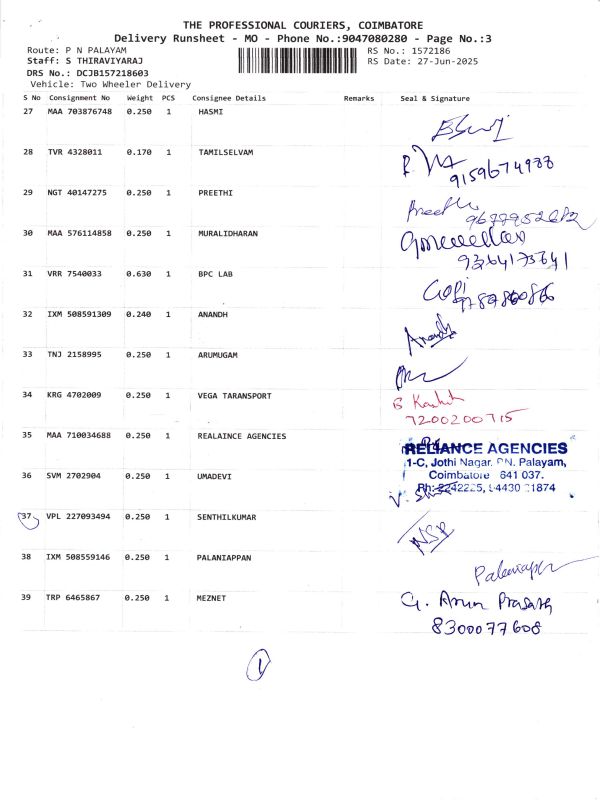 THE PROFESSIONAL COURIERS, COIMBATORE
Delivery Runsheet - MO - Phone No.:9047080280 - Page No.:3
Route: P N PALAYAM
RS No.: 1572186
Staff: S THIRAVIYARAJ
RS Date: 27-Jun-2025
DRS No.: DCJB157218603
Vehicle: Two Wheeler Delivery
S No Consignment No Weight PCS Consignee Details Remarks Seal & Signature
27 MAA 703876748 0.250 1 HASMI
28 TVR 4328011 0.170 1 TAMILSELVAM
9159674988
29 NGT 40147275 0.250 1 PREETHI
Preethi
30 MAA 576114858 0.250 1 MURALIDHARAN
31 VRR 7540033 0.630 1 BPC LAB
Gopi
32 IXM 508591309 0.240 1 ANANDH
Anandh
33 TNJ 2158995 0.250 1 ARUMUGAM
34 KRG 4702009 0.250 1 VEGA TARANSPORT
7200200715
35 MAA 710034688 0.250 1 REALAINCE AGENCIES
RELIANCE AGENCIES
1-C, Jothi Nagar, P.N. Palayam,
Coimbatore 641 037.
36 SVM 2702904 0.250 1 UMADEVI
37 VPL 227093494 0.250 1 SENTHILKUMAR
NSP
38 IXM 508559146 0.250 1 PALANIAPPAN
39 TRP 6465867 0.250 1 MEZNET
G. Arun Prasath
8300077608
1